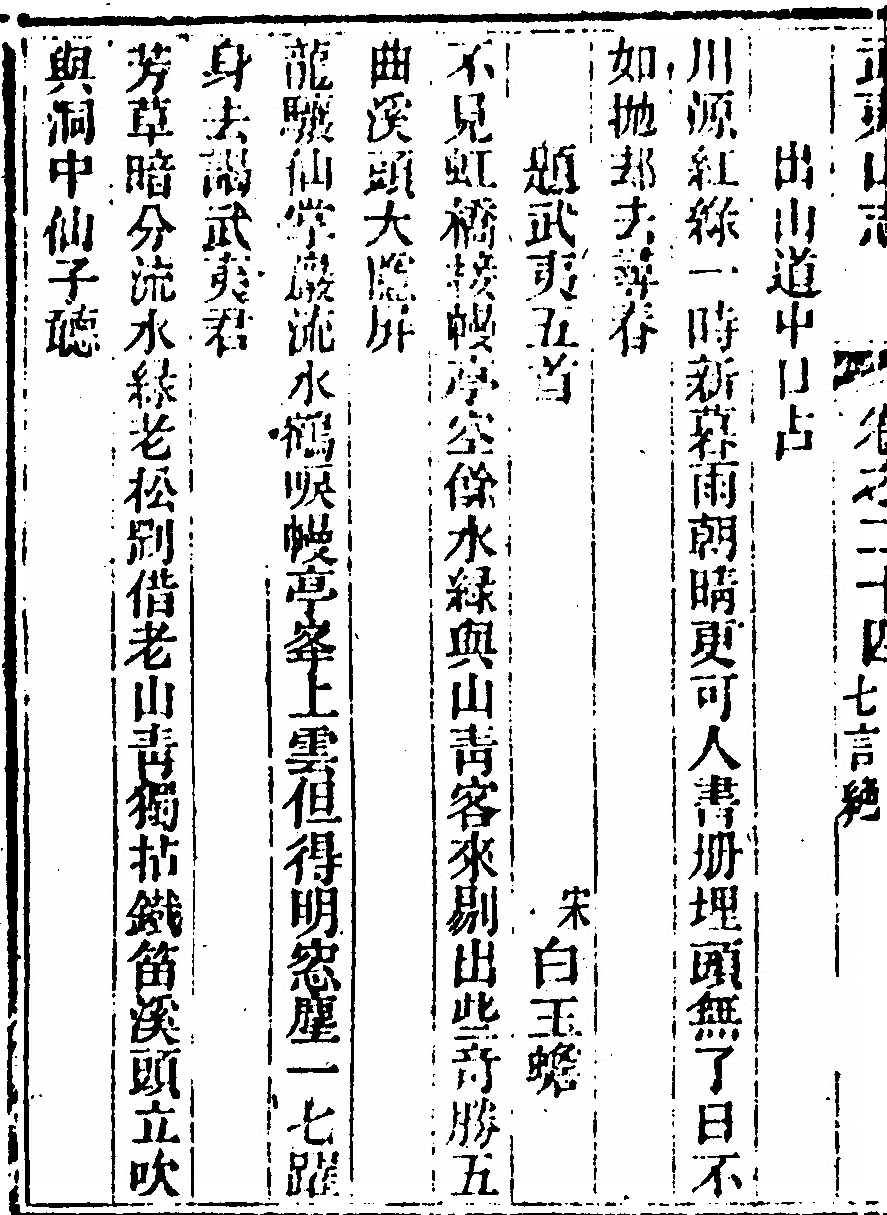 武夷山志 卷之二十四 七言絕
出山道中口占
川源紅綠一時新暮雨朝晴更可人書册埋頭無了日不
如抛却去尋春
題武夷五首 宋 白玉蟾
不見虹橋接幔亭空餘水綠與山青客來剔出些奇勝五
曲溪頭大隱屏
龍驤仙掌巖流水鶴唳幔亭峯上雲但得明窓塵一七躍
身去謁武夷君
芳草暗分流水綠老松剛借老山青獨拈鐵笛溪頭立吹
與洞中仙子聽